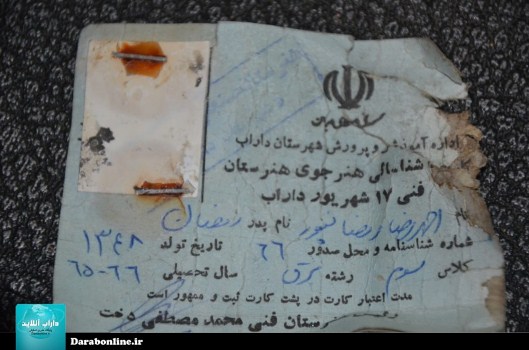 اداره آموزش و پرورش شهرستان داراب
شناسائی هنرجوی هنرستان
فنی ۱۷ شهریور داراب
نام احمدرضا رضاپور نام پدر رمضان
شماره شناسنامه و محل صدور ۶۶ تاریخ تولد ۱۳۴۸
کلاس سوم رشته برق سال تحصیلی ۶۶-۶۵
مدت اعتبار کارت در پشت کارت ثبت و ممهور است
رستان فنی محمد مصطفی درخت
داراب آنلاین
Darabonline.ir